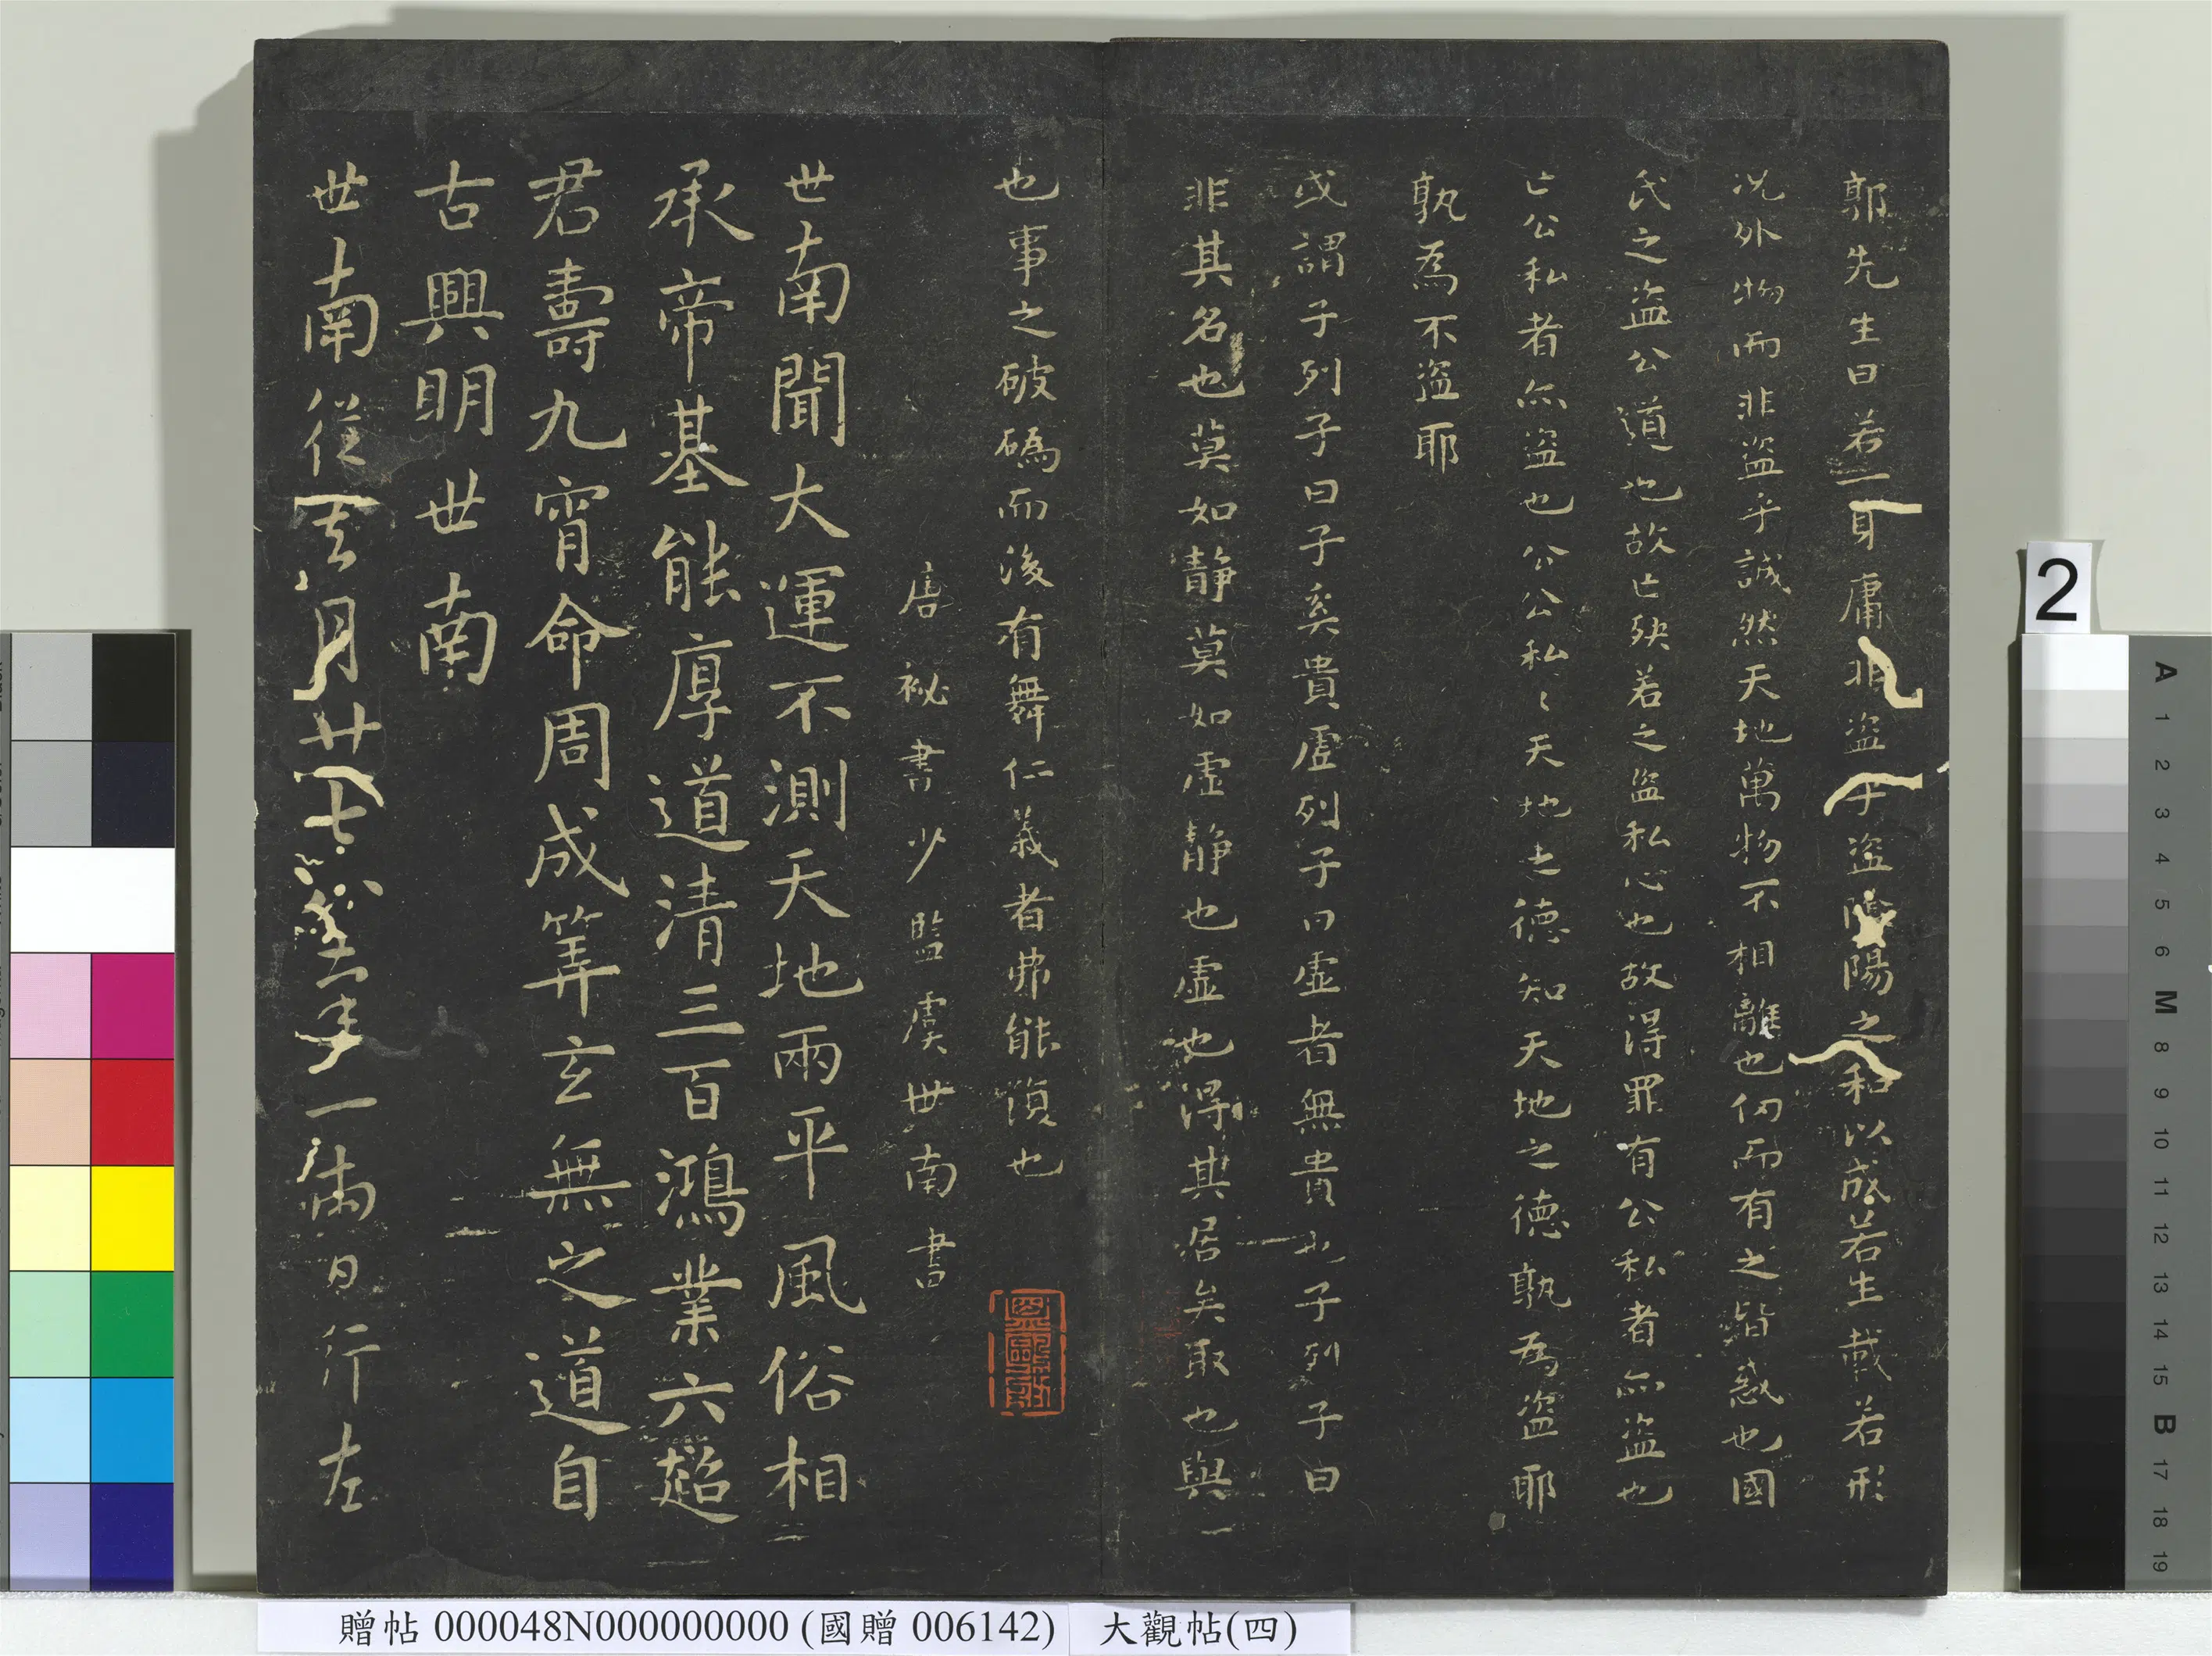 郭先生曰若一身庸非盜乎盜陰陽之和以成若生載若形
況外物而非盜乎誠然天地萬物不相離也仞而有之皆惑也國
氏之盜公道也故亡殃若之盜私心也故得罪有公私者亦盜也
亡公私者亦盜也公公私〻天地之德知天地之德孰為盜耶
孰為不盜耶
或謂子列子曰子奚貴虛列子曰虛者無貴也子列子曰
非其名也莫如靜莫如虛靜也虛也得其居矣取也與
也事之破䃣而後有舞仁義者弗能復也
唐祕書少監虞世南書
世南聞大運不測天地兩平風俗相
承帝基能厚道清三百鴻業六超
君壽九霄命周成筭玄無之道自
古興明世南
世南從去月廿七 一兩日行左
贈帖 000048N000000000 (國贈 006142) 大觀帖(四)
2
A 1 2 3 4 5 6 M 8 9 10 11 12 13 14 15 B 17 18 19